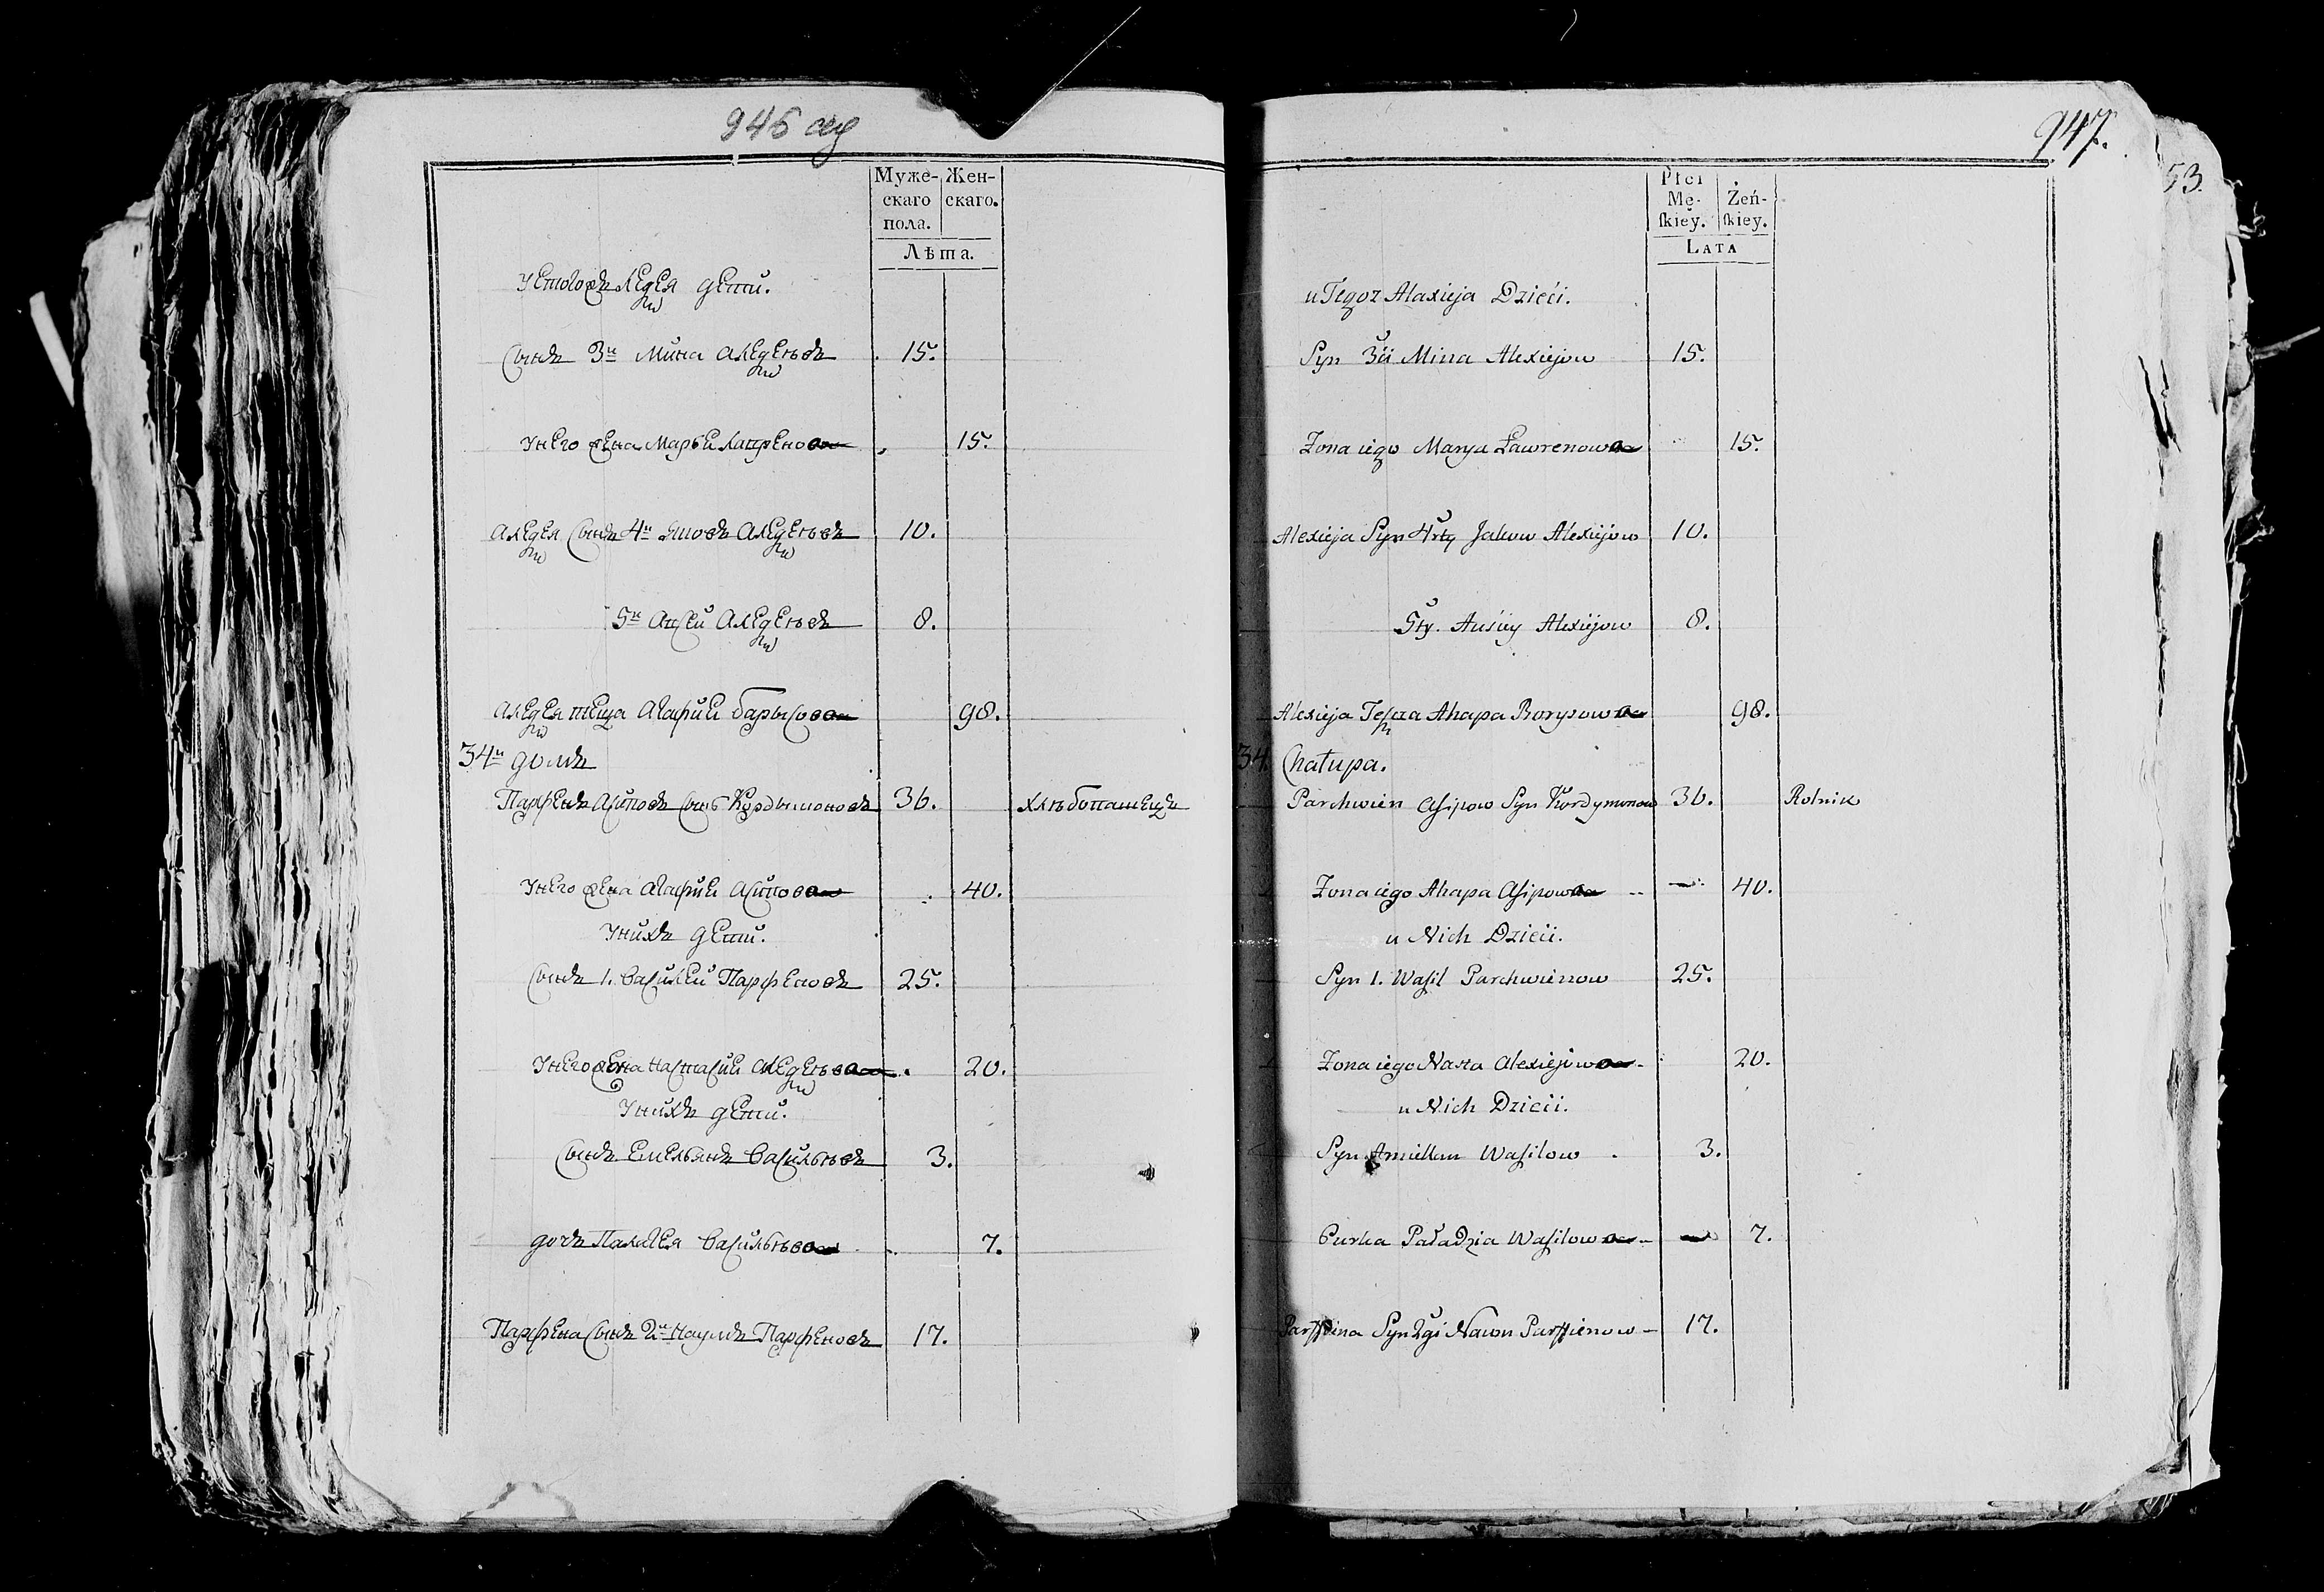 946
Муже-
скаго
пола.
Жен-
скаго.
Лѣта.
Дети.
Сынъ 3й Мина Алеѯеевъ 15.
У него жена Марья 15.
Алеѯея Сынъ 4й Яковъ Алеѯеевъ 10.
5й Алеѯеевъ 8.
Алеѯея теща Агафия Барысова 98.
34й домъ
Парфенъ Асиповъ Сынъ Кордымоновъ 36. хлѣбопашецъ
У него жена Агафия Асипова 40.
У нихъ дети.
Сынъ 1. Василеи Парфеновъ 25.
У него жена Настасия Алеѯеева 20.
У нихъ дети.
Сынъ Емельянъ Васильевъ 3.
дочь Палагея Васильева 7.
Парфена Сынъ 2й Наумъ Парфеновъ 17.
947.
53.
Płci
Mę-
ſkiey.
Żeń-
ſkiey.
LATA
u Tegoz Alaxieja Dzieci.
Syn 3ci Mina Alexiejow 15.
Zona iego Marya Ławrenowa 15.
Alexieja Syn 4rty Jakow Alexiejow 10.
5ty. Alexiejow 8.
Alexieja Ahapa Borysowa 98.
34. Chałupa.
Parchwien Asipow Syn Kordymonow 36. Rolnik
Zona iego Ahapa Asipowa 40.
u Nich Dzieci.
Syn 1. Wasil Parchwienow 25.
Zona iego Nasta Alexiejowa 20.
u Nich Dzieci.
Syn Wasilow 3.
Curka Paładzia Wasilowa 7.
Syn 2gi Nawm Parffienow 17.